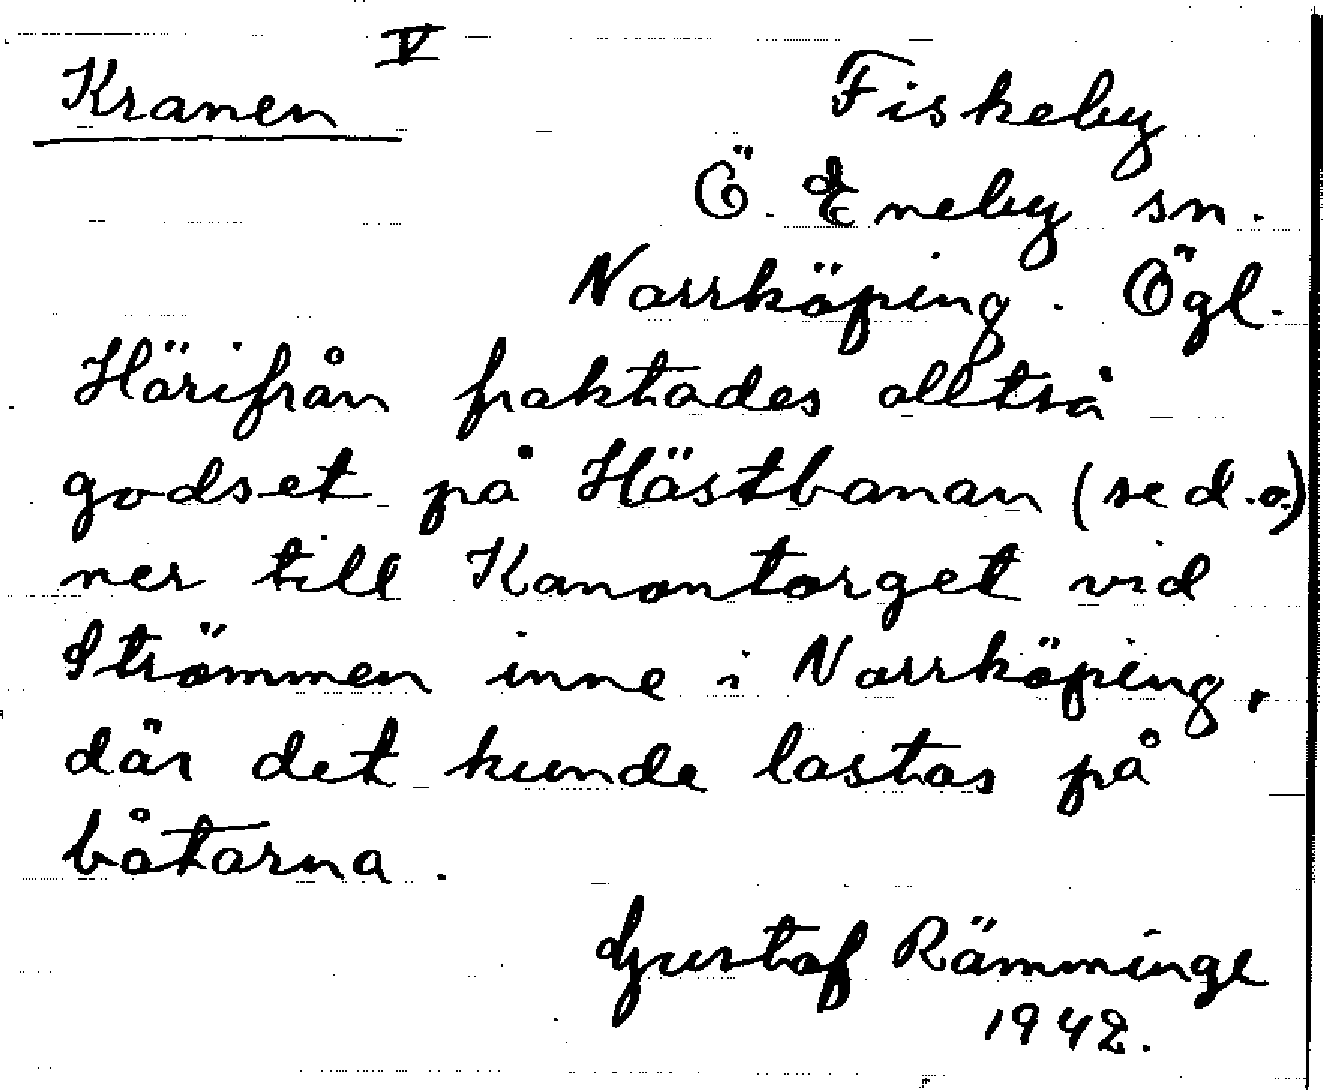 Kranen V
Fiskeby
Ö. Eneby sn.
Norrköping. Ögl.
Härifrån fraktades allt så
godset på Hästbanan (se d.o.)
ner till Kanontorget vid
Strömmen inne i Norrköping,
där det kunde lastas på
båtarna.
Gustaf Rämminge
1942.